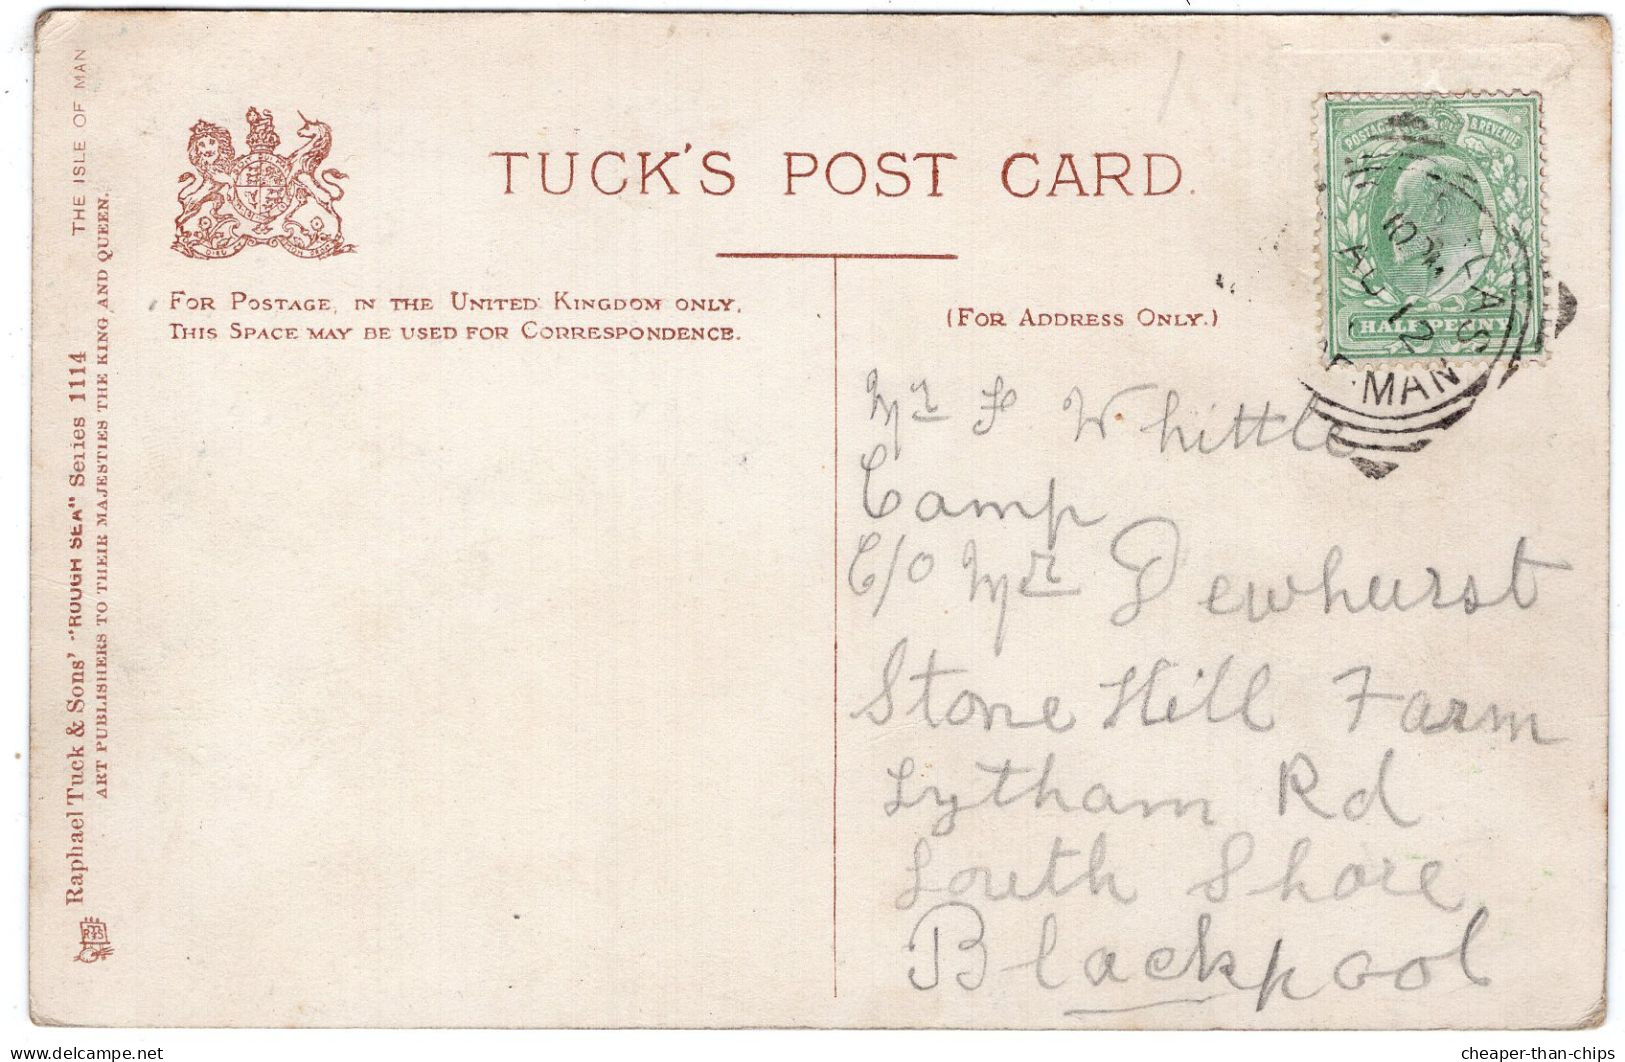 THE ISLE OF MAN
Raphael Tuck & Sons' "ROUGH SEA" Series 1114
ART PUBLISHERS TO THEIR MAJESTIES THE KING AND QUEEN.
TUCK'S POST CARD.
FOR POSTAGE, IN THE UNITED KINGDOM ONLY,
THIS SPACE MAY BE USED FOR CORRESPONDENCE.
(FOR ADDRESS ONLY.)
POSTAGE & REVENUE
HALF PENNY
10 PM
AU 12
MAN
Mr F Whittle
Camp
C/O Mr Dewhurst
Stone Hill Farm
Lytham Rd
South Shore
Blackpool
delcampe.net
cheaper-than-chips